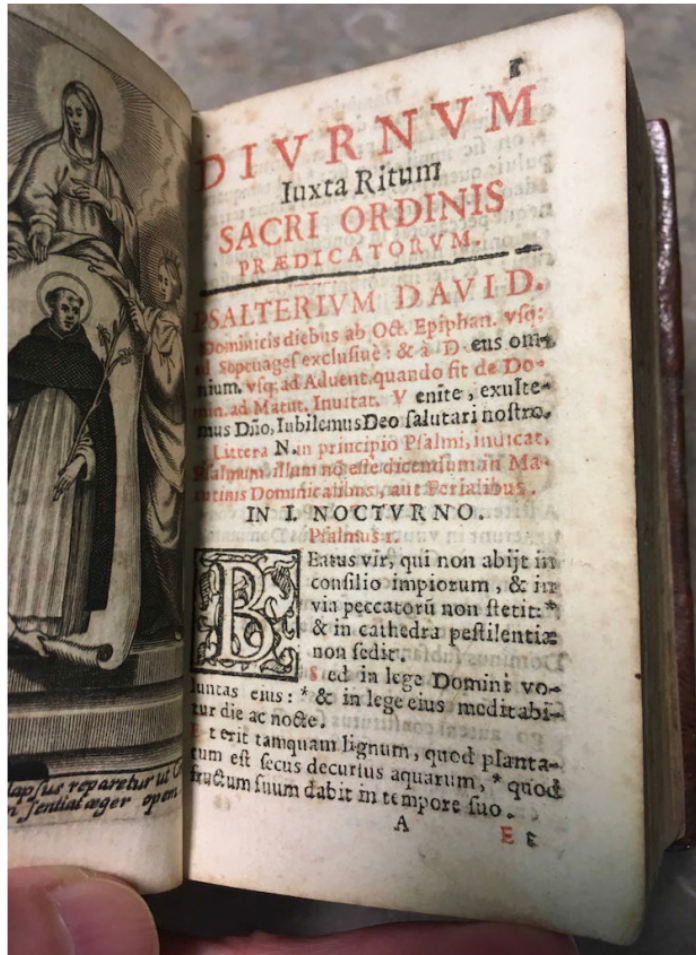 lapsus reparetur ut
sentiat æger opem
1
DIVRNVM
Iuxta Ritum
SACRI ORDINIS
PRÆDICATORVM.
PSALTERIVM DAVID.
Dominicis diebus ab Oct. Epiphan. vsq;
ad Septuages exclusiuè: & à D eus om-
nium. vsq; ad Aduent. quando fit de Do-
min. ad Matut. Inuitat. V enite, exulte-
mus Dño, IubilemusDeo salutari nostro.
Littera N. in principio Psalmi, indicat,
Psalmum illum nō esse dicendum in Ma-
tutinis Dominicalibus, aut Ferialibus.
IN I. NOCTVRNO.
Psalmus 1.
BEatus vir, qui non abijt in
consilio impiorum, & in
via peccatorū non stetit: *
& in cathedra pestilentiæ
non sedit.
S ed in lege Domini vo-
luntas eius: * & in lege eius meditabi-
tur die ac nocte.
E t erit tamquam lignum, quod planta-
tum est secus decursus aquarum, * quod
fructum suum dabit in tempore suo.
A
E t